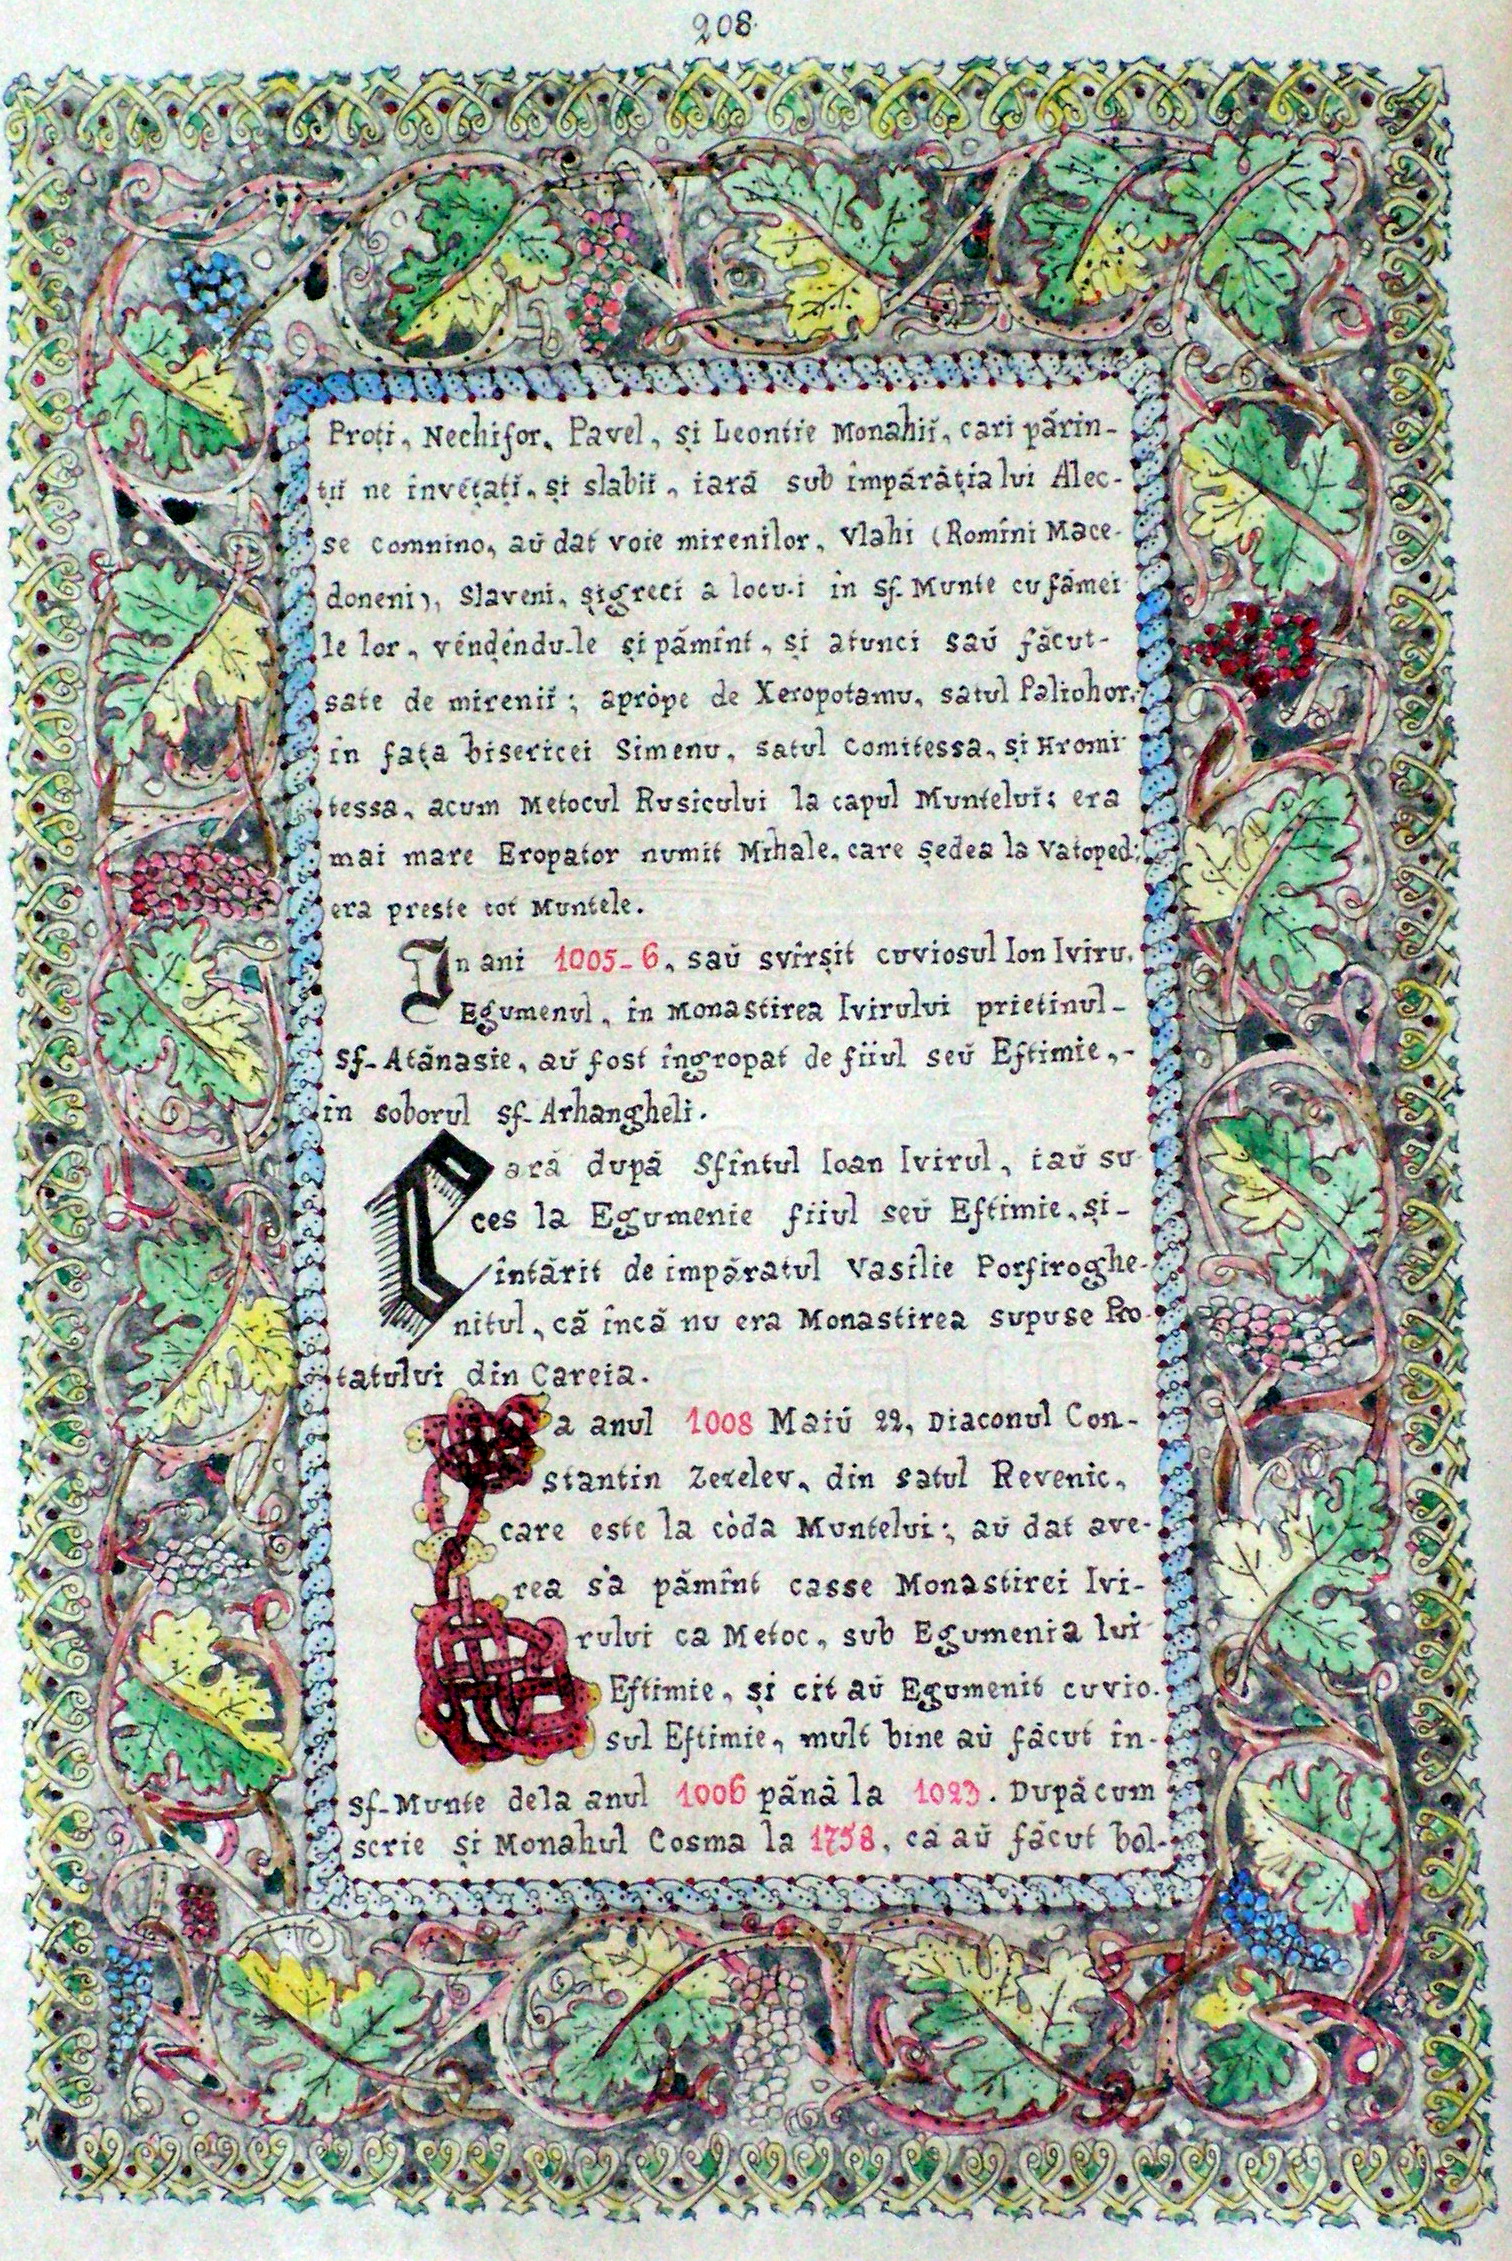 208.
Proți, Nechifor, Pavel, și Leontie Monahiĭ, cari părin-
țiĭ ne învĕțațĭ, și slabiĭ, iară sub împărăția lui Alec-
se Comnino, aŭ dat voie mirenilor, Vlahi (Romîni Mace-
doneni), Slaveni, și greci a locui în Sf. Munte cu fămei
le lor, vĕnḑĕndu-le și pămînt, și atunci saŭ făcut-
sate de mireniĭ; aprópe de Xeropotamu, satul Paliohor,
în fața bisericei Simenu, satul Comitessa, și Hromi
tessa, acum Metocul Rusicului la capul Muntelui; era
mai mare Eropator numit Mihale, care ședea la Vatoped;
era preste tot Muntele.
In ani 1005-6, saŭ svîrșit cuviosul Ion Iviru,
Egumenul, în Monastirea Ivirului prietinul-
Sf. Atănasie, aŭ fost îngropat de fiiul seŭ Eftimie,-
în soborul Sf. Arhangheli.
Iară după Sfîntul Ioan Ivirul, iaŭ su
ces la Egumenie fiiul seŭ Eftimie, și-
întărit de împăratul Vasilie Porfiroghe-
nitul, că încă nu era Monastirea supuse Pro-
tatului din Careia.
La anul 1008 Maiŭ 22, Diaconul Con-
stantin Zezelev, din satul Revenic,
care este la códa Muntelui; aŭ dat ave-
rea s'a pămînt casse Monastirei Ivi-
rului ca Metoc, sub Egumenia lui
Eftimie, și cit aŭ Egumenit cuvio-
sul Eftimie, mult bine aŭ făcut în-
Sf. Munte dela anul 1006 până la 1023. După cum
scrie și Monahul Cosma la 1758, că aŭ făcut bol-